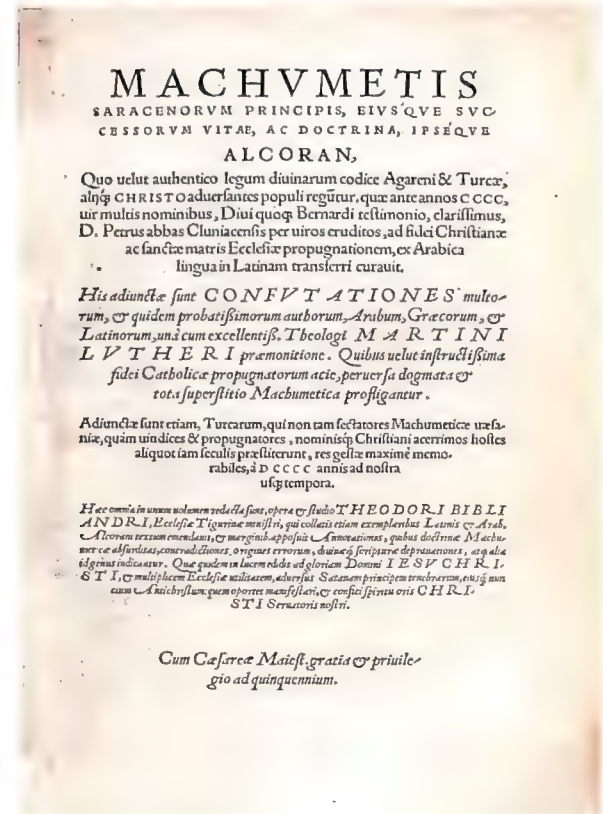 MACHVMETIS
SARACENORVM PRINCIPIS, EIVS'QVE SVC-
CESSORVM VITAE, AC DOCTRINA, IPSE'QVE
ALCORAN,
Quo uelut authentico legum diuinarum codice Agareni & Turcæ,
alijq́; CHRISTO aduersantes populi regũtur. quæ ante annos CCCC,
uir multis nominibus, Diui quoq; Bernardi testimonio, clarissimus,
D. Petrus abbas Cluniacensis per uiros eruditos, ad fidei Christianæ
ac sanctæ matris Ecclesiæ propugnationem, ex Arabica
lingua in Latinam transferri curauit.
His adiunctæ sunt CONFVTATIONES multo-
rum, & quidem probatißimorum authorum, Arabum, Græcorum, &
Latinorum, unà cum excellentiß. Theologi MARTINI
LVTHERI præmonitione. Quibus uelut instructißima
fidei Catholicæ propugnatorum acie, peruersa dogmata &
tota superstitio Machumetica profligantur.
Adiunctæ sunt etiam, Turcarum, qui non tam sectatores Machumeticæ uæsa-
niæ, quàm uindices & propugnatores, nominisq́; Christiani acerrimos hostes
aliquot iam seculis præstiterunt, res gestæ maximè memo-
rabiles, à DCCCC annis ad nostra
usq; tempora.
Hæc omnia in unum uolumen redacta sunt, opera & studio THEODORI BIBLI
ANDRI, Ecclesiæ Tigurinæ ministri, qui collatis etiam exemplaribus Latinis & Arab.
Alcorani textum emendauit, & marginib. apposuit Annotationes, quibus doctrinæ Machu-
meticæ absurditas, contradictiones, origines errorum, diuinæq́; scripturæ deprauationes, atq; alia
id genus indicantur. Quæ quidem in lucem edidit ad gloriam Domini IESV CHRI-
STI, & multiplicem Ecclesiæ utilitatem, aduersus Satanam principem tenebrarum, eiusq́; nun
cium Antichristum: quem oportet manifestari, & confici spiritu oris CHRI-
STI Seruatoris nostri.
Cum Cæsareæ Maiest. gratia & priuile-
gio ad quinquennium.